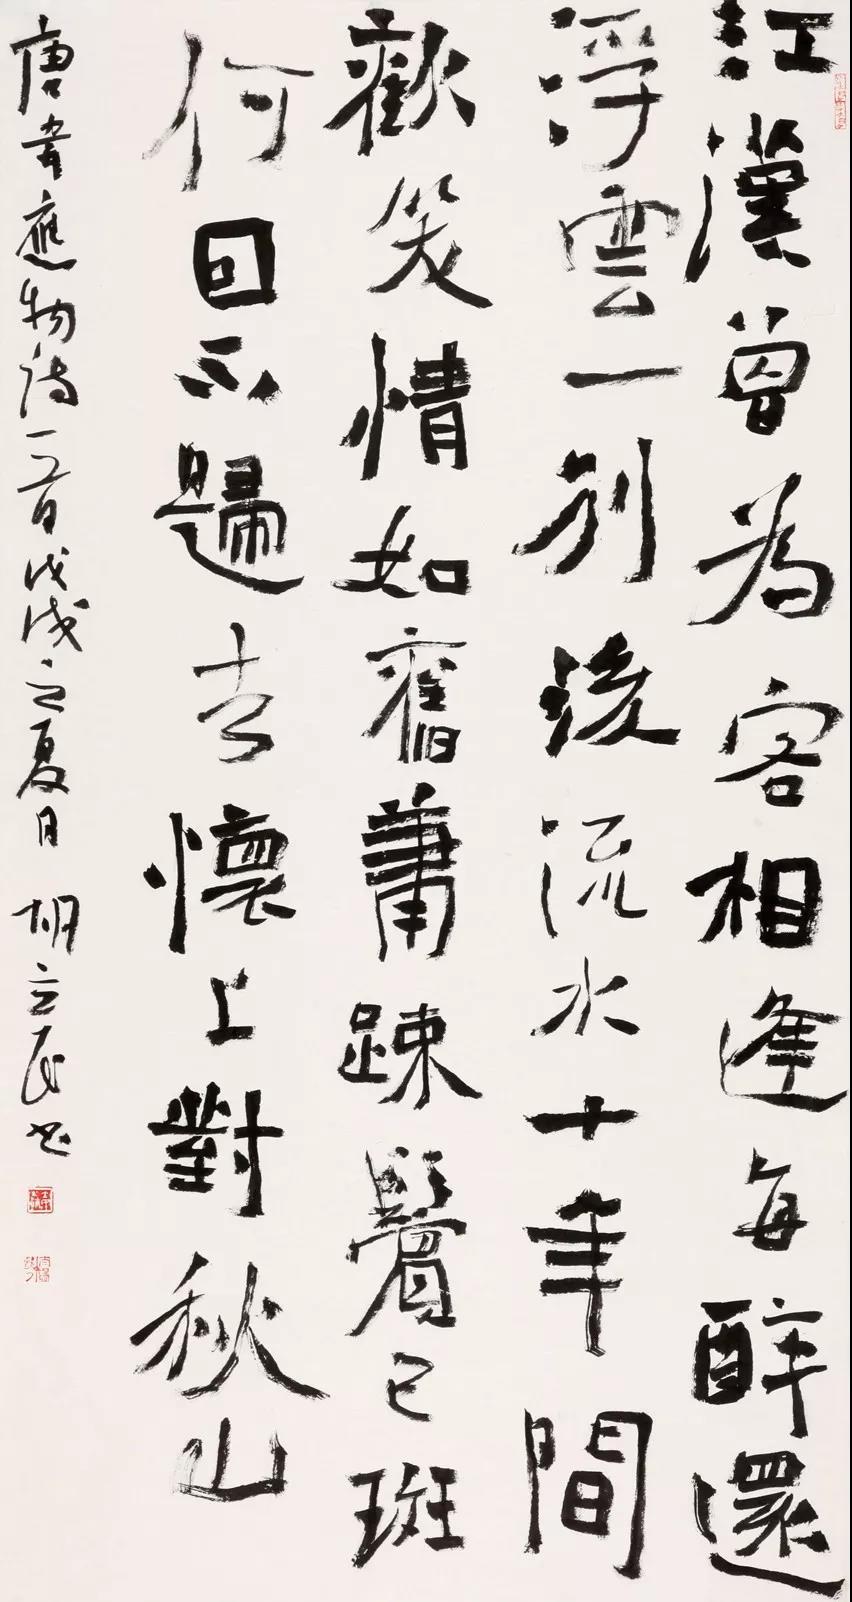 江漢曾為客相逢每醉還
浮雲一別後流水十年間
歡笑情如舊蕭踈鬢已斑
何囙不歸去懷上對秋山
唐韋應物詩一首戊戌立夏日胡立民书